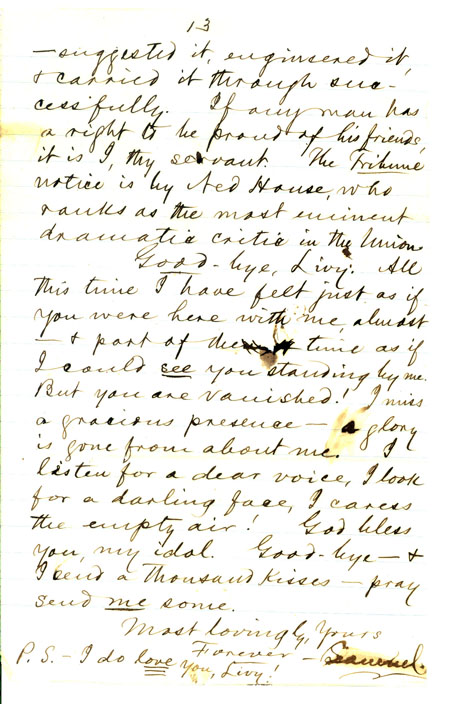 13
—suggested it, engineered it,
& carried it through suc-
cessfully. If any man has
a right to be proud of his friends,
it is I, thy servant. The Tribune
notice is by Ned House, who
ranks as the most eminent
dramatic critic in the Union.
Good-bye, Livy. All
this time I have felt just as if
you were here with me, almost
—& part of the time as if
I could see you standing by me.
But you are vanished! I miss
a gracious presence—a glory
is gone from about me. I
listen for a dear voice, I look
for a darling face, I caress
the empty air! God bless
you, my idol. Good-bye—&
I send a thousand kisses—pray
send me some.
Most lovingly, Yours
Forever—Samuel.
P.S.—I do love you, Livy!